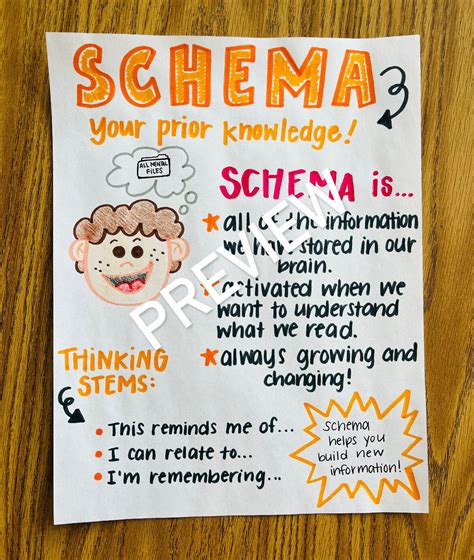 SCHEMA
your prior knowledge!
ALL MENTAL
FILES
SCHEMA is...
all of the information
we have stored in our
brain.
activated when we
want to understand
what we read.
always growing and
changing!
PREVIEW
THINKING
STEMS:
This reminds me of...
I can relate to...
I'm remembering...
Schema
helps you
build new
information!